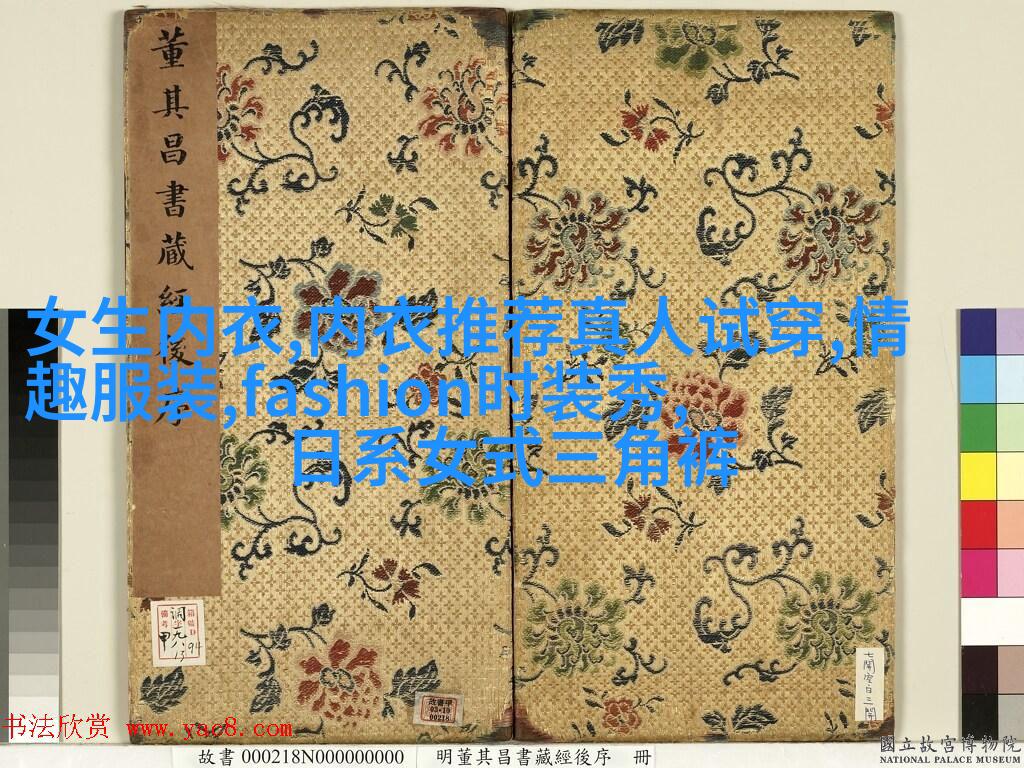 董其昌書藏經後序
女生内衣,内衣推荐真人试穿,情
趣服装,fashion时装秀,
日系女式三角裤
故書甲
03•10
00218
七開空白三開
书法欣赏 www.yac8.com
國立故宮博物院
NATIONAL PALACE MUSEUM
故書 000218N000000000 明董其昌書藏經後序 冊